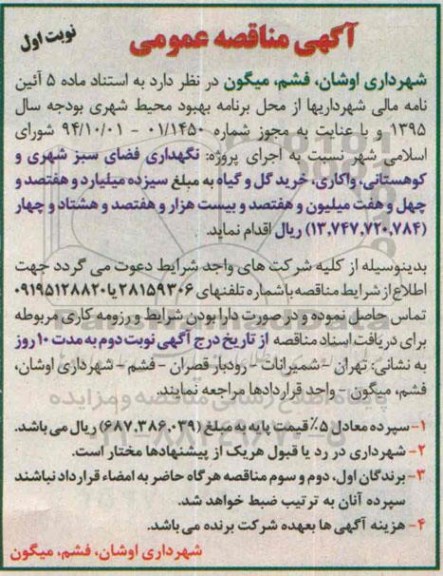 آگهی مناقصه عمومی
نوبت اول
شهرداری اوشان، فشم، میگون در نظر دارد به استناد ماده ۵ آئین
نامه مالی شهرداریها از محل برنامه بهبود محیط شهری بودجه سال
۱۳۹۵ و با عنایت به مجوز شماره ۰۱/۱۴۵۰ - ۹۴/۱۰/۰۱ شورای
اسلامی شهر نسبت به اجرای پروژه: نگهداری فضای سبز شهری و
کوهستانی، واکاری، خرید گل و گیاه به مبلغ سیزده میلیارد و هفتصد و
چهل و هفت میلیون و هفتصد و بیست هزار و هفتصد و هشتاد و چهار
(۱۳,۷۴۷,۷۲۰,۷۸۴) ریال اقدام نماید.
بدینوسیله از کلیه شرکت های واجد شرایط دعوت می گردد جهت
اطلاع از شرایط مناقصه با شماره تلفنهای ۲۸۱۵۹۳۰۶ یا ۰۹۱۹۵۱۲۸۸۲۰
تماس حاصل نموده و در صورت دارا بودن شرایط و رزومه کاری مربوطه
برای دریافت اسناد مناقصه از تاریخ درج آگهی نوبت دوم به مدت ۱۰ روز
به نشانی: تهران - شمیرانات - رودبار قصران - فشم - شهرداری اوشان،
فشم، میگون - واحد قراردادها مراجعه نمایند.
۱- سپرده معادل ۵٪ قیمت پایه به مبلغ (۶۸۷,۳۸۶,۰۳۹) ریال می باشد.
۲- شهرداری در رد یا قبول هریک از پیشنهادها مختار است.
۳- برندگان اول، دوم و سوم مناقصه هرگاه حاضر به امضاء قرارداد نباشند
سپرده آنان به ترتیب ضبط خواهد شد.
۴- هزینه آگهی ها بعهده شرکت برنده می باشد.
شهرداری اوشان، فشم، میگون